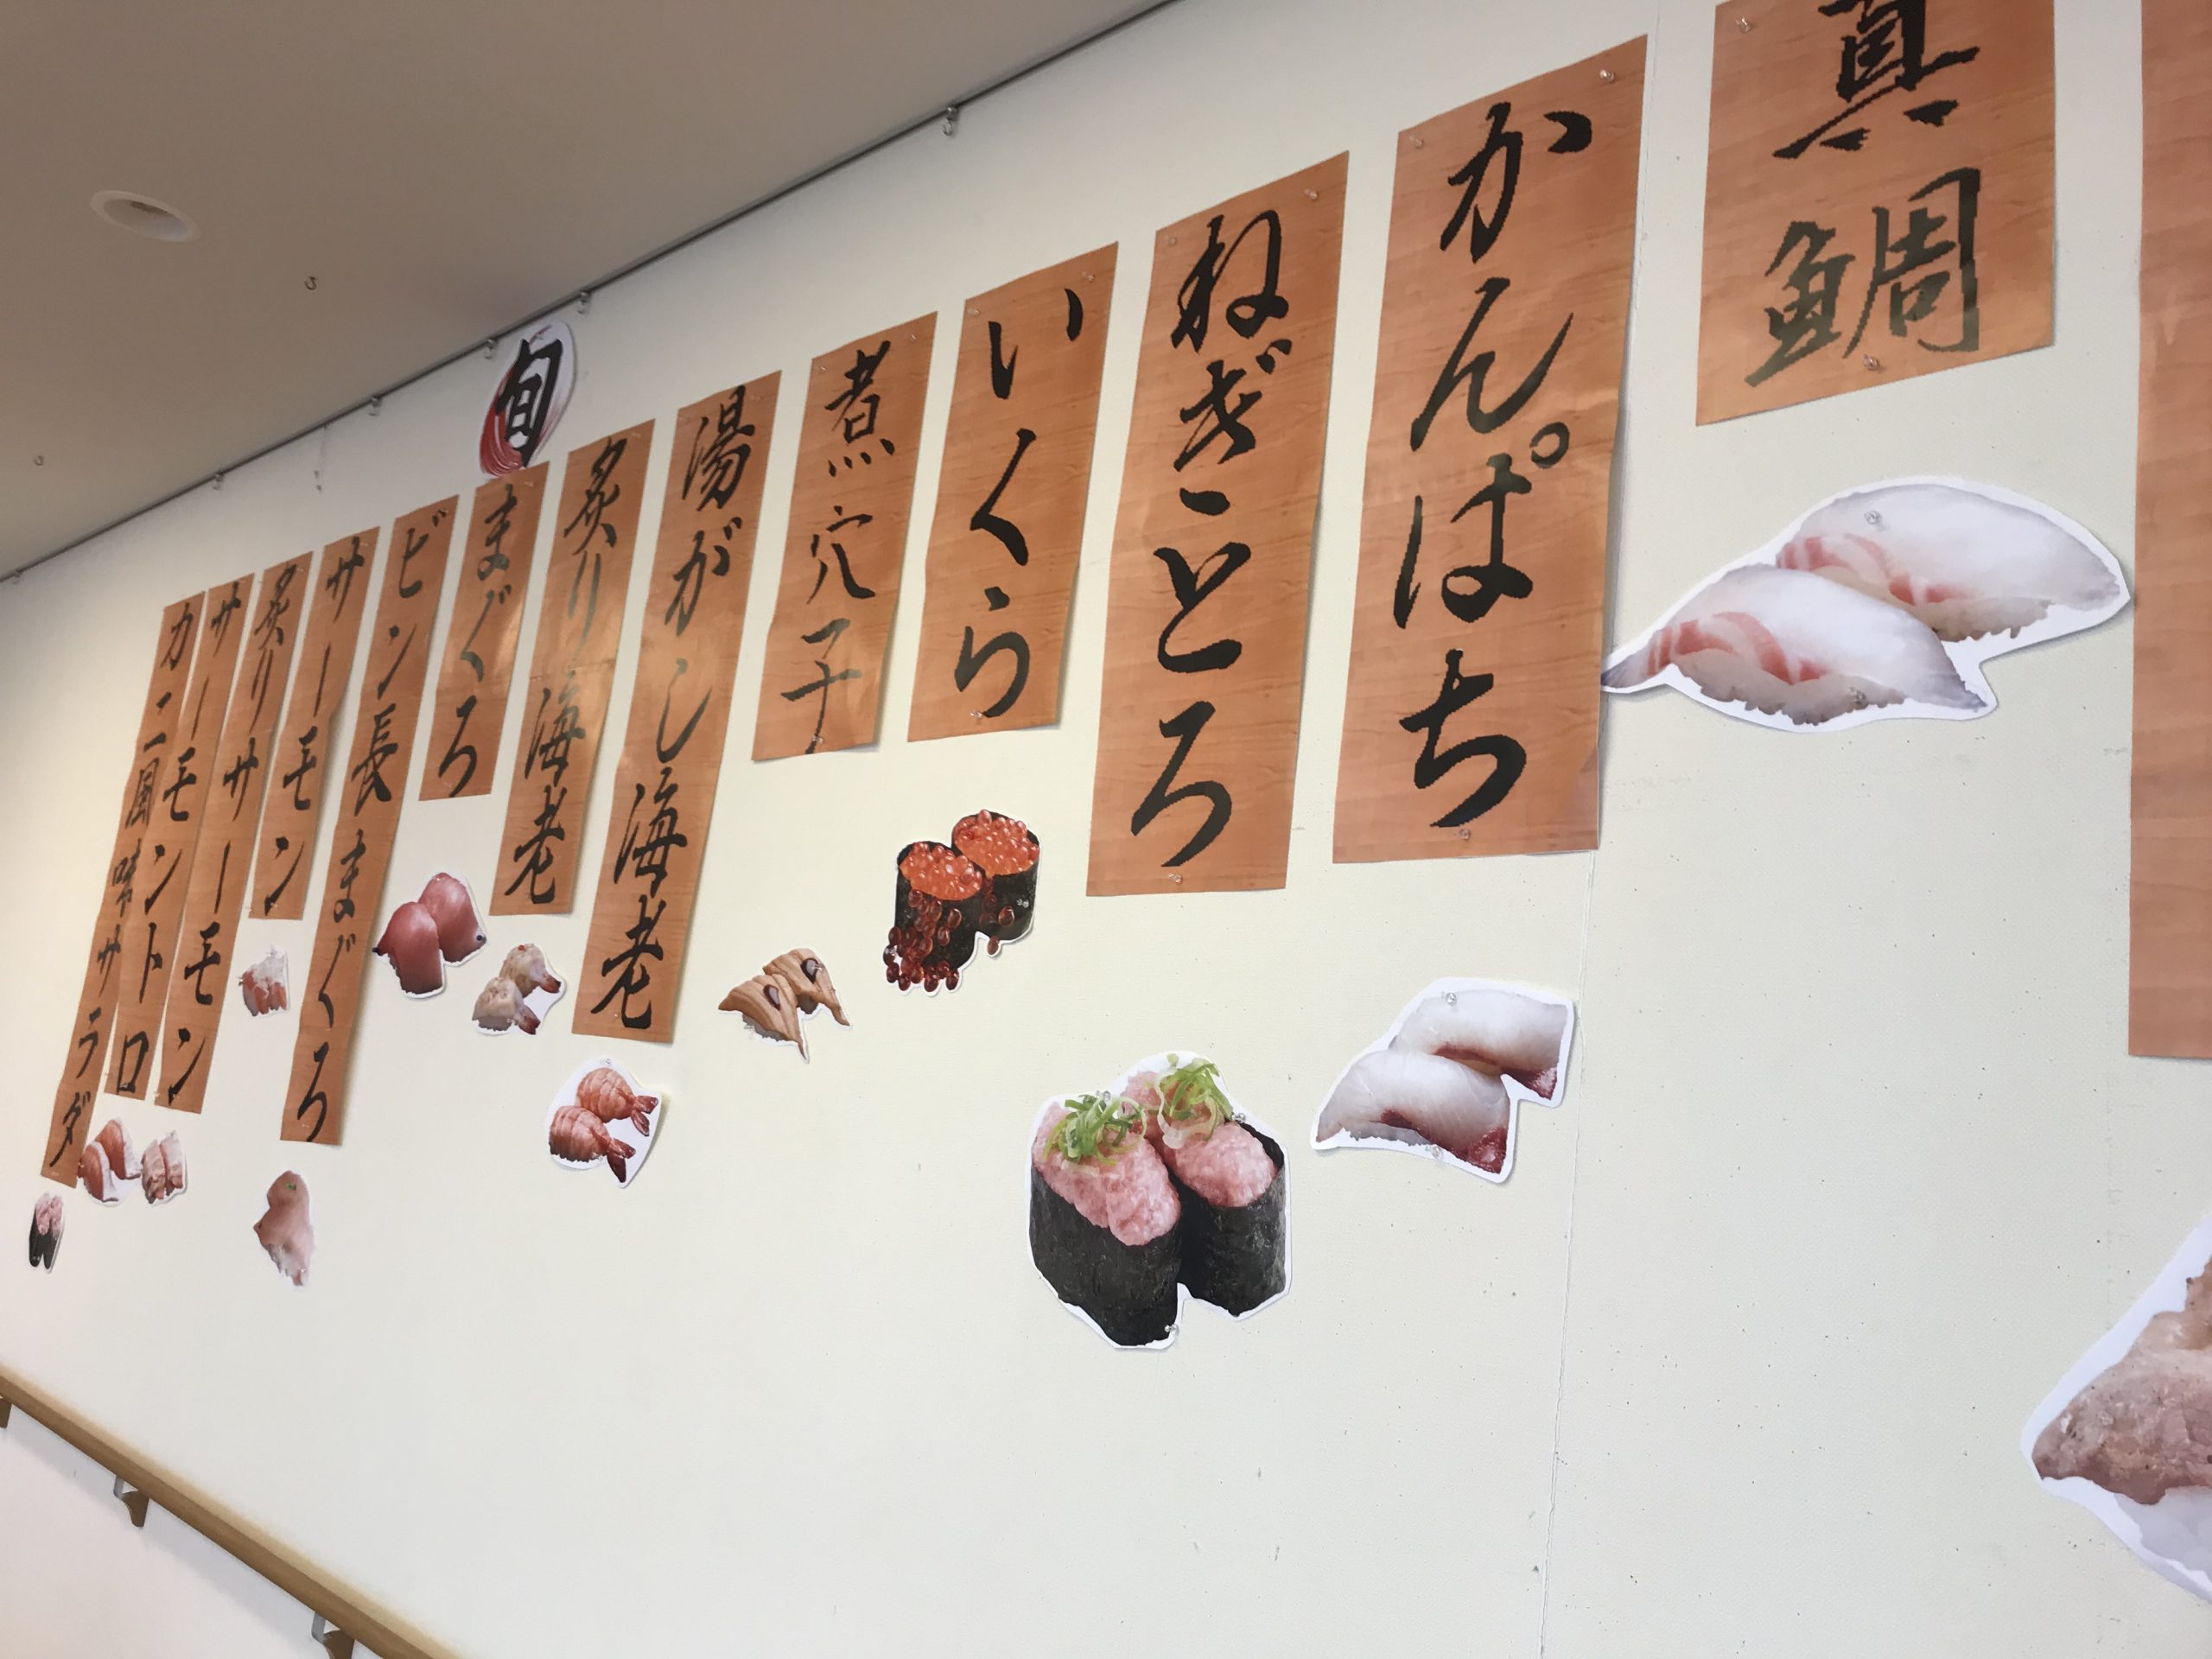 真鯛
かんぱち
ねぎとろ
いくら
煮穴子
湯がし海老
炙り海老
旬
まぐろ
ビン長まぐろ
サーモン
炙りサーモン
サーモントロ
カニ風味サラダ